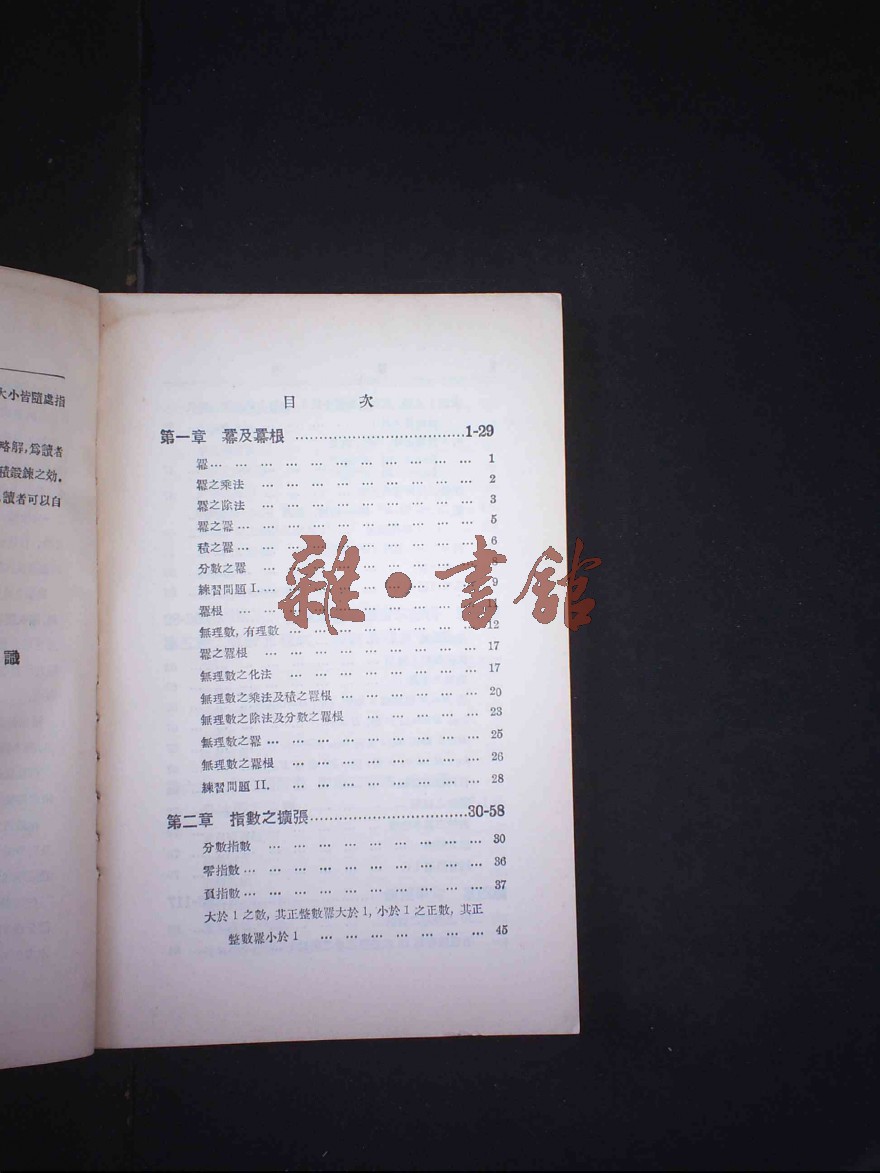 大小皆隨處指
略解,爲讀者
積鍛鍊之効.
讀者可以自
識
目 次
第一章 羃及羃根 ........................................1-29
羃 ... ... ... ... ... ... ... ... ... ... ... 1
羃之乘法 ... ... ... ... ... ... ... ... ... 2
羃之除法 ... ... ... ... ... ... ... ... ... 3
羃之羃 ... ... ... ... ... ... ... ... ... ... 5
積之羃 ... ... ... ... ... ... ... ... ... ... 6
分數之羃 ... ... ... ... ... ... ... ... ... 8
練習問題 I. ... ... ... ... ... ... ... ... ... 9
羃根 ... ... ... ... ... ... ... ... ... ... 11
無理數,有理數 ... ... ... ... ... ... ... ... 12
羃之羃根 ... ... ... ... ... ... ... ... ... 17
無理數之化法 ... ... ... ... ... ... ... ... 17
無理數之乘法及積之羃根 ... ... ... ... ... ... 20
無理數之除法及分數之羃根 ... ... ... ... ... 23
無理數之羃 ... ... ... ... ... ... ... ... ... 25
無理數之羃根 ... ... ... ... ... ... ... ... 26
練習問題 II. ... ... ... ... ... ... ... ... 28
第二章 指數之擴張 ........................................30-58
分數指數 ... ... ... ... ... ... ... ... ... 30
零指數 ... ... ... ... ... ... ... ... ... ... 36
負指數 ... ... ... ... ... ... ... ... ... ... 37
大於 1 之數,其正整數羃大於 1,小於 1 之正數,其正
整數羃小於 1 ... ... ... ... ... ... ... 45
雜·書館